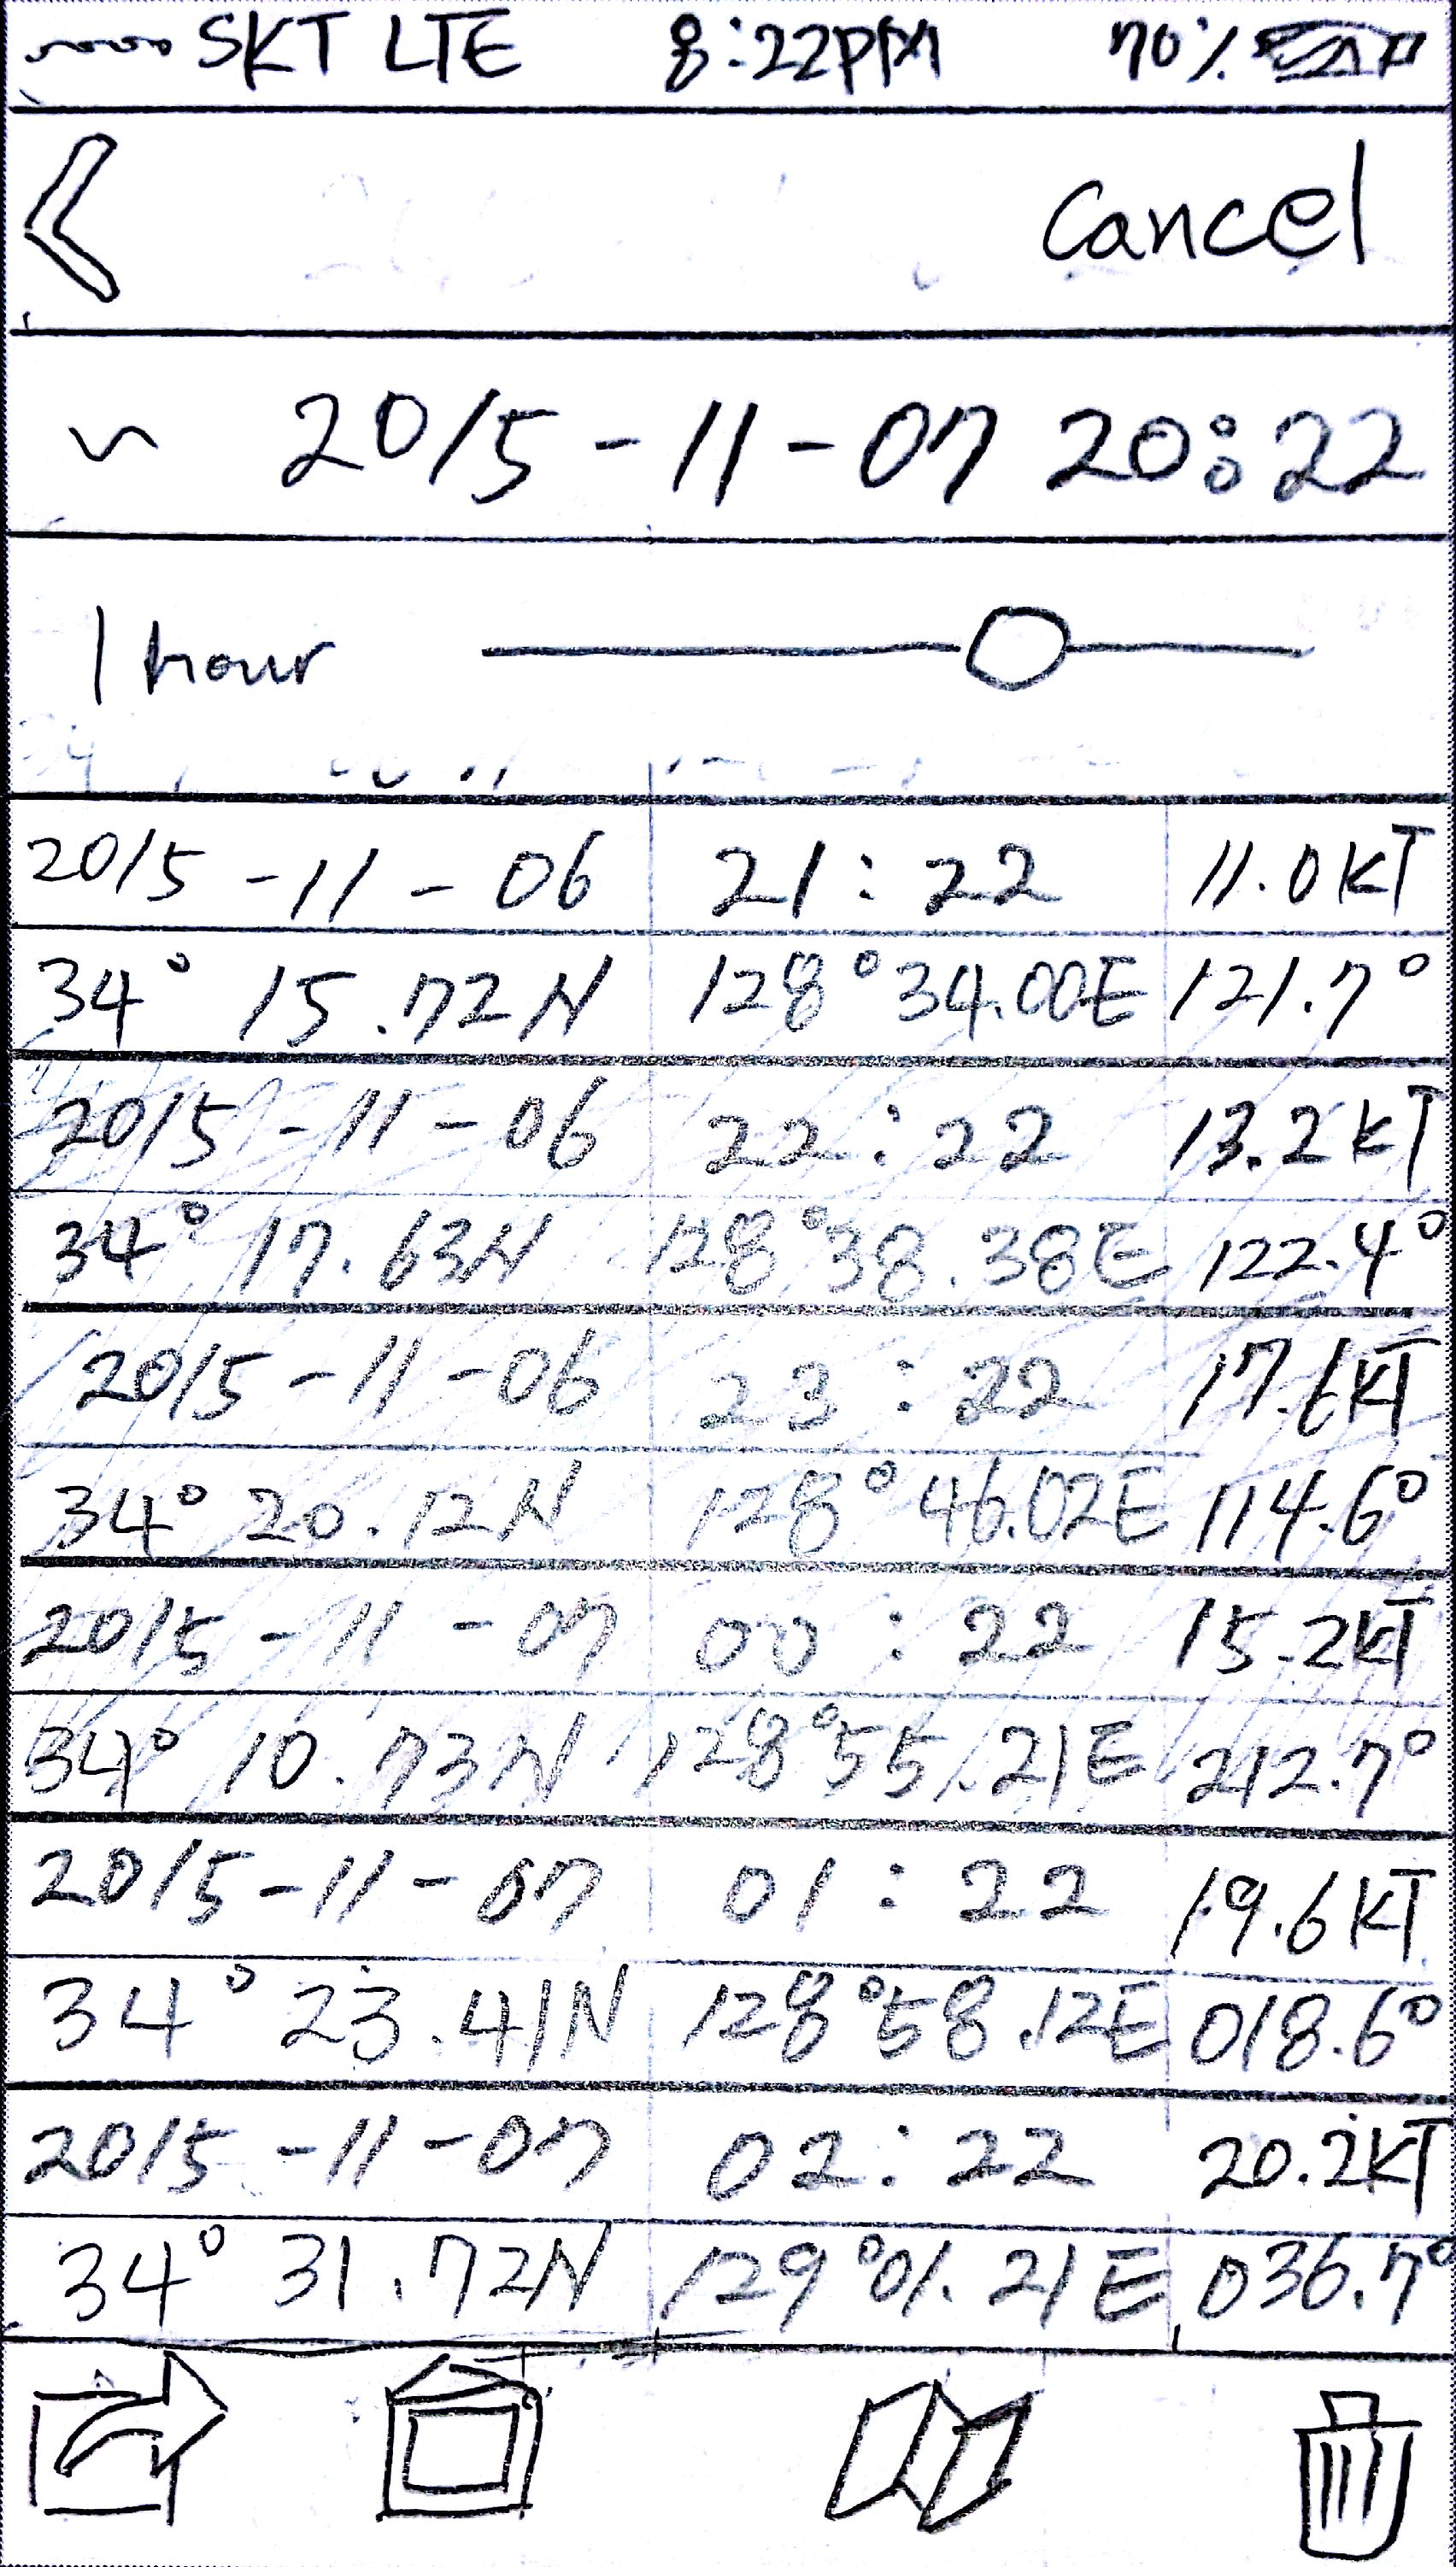 SKT LTE 8:22PM 70%
Cancel
~ 2015-11-07 20:22
1 hour
2015-11-06 21:22 11.0KT
34° 15.72N 128°34.00E 121.7°
2015-11-06 22:22 13.2KT
34° 17.63N 128°38.38E 122.4°
2015-11-06 23:22 17.6KT
34° 20.12N 128°46.02E 114.6°
2015-11-07 00:22 15.2KT
34° 10.73N 128°55.21E 212.7°
2015-11-07 01:22 19.6KT
34° 23.41N 128°58.12E 018.6°
2015-11-07 02:22 20.2KT
34° 31.72N 129°01.21E 036.7°